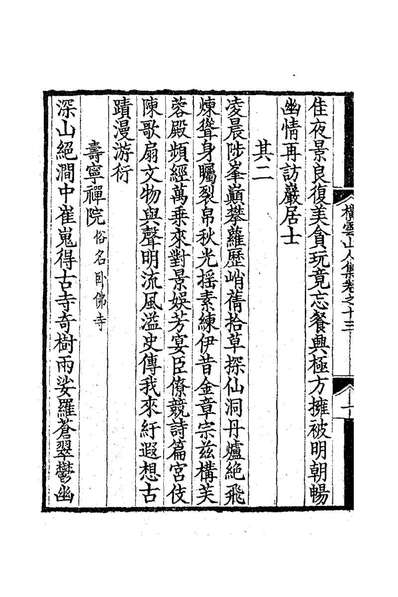 橫雲山人集卷之十三
十一
佳夜景良復美貪玩竟忘餐興極方擁被明朝暢
幽情再訪嚴居士
其二
凌晨陟峯巔攀蘿歷峭蒨拾草探仙洞丹爐絶飛
煉聳身矚裂帛秋光搖素練伊昔金章宗茲構芙
蓉殿頻經萬乘來對景娛芳宴臣僚競詩篇宮伎
陳歌扇文物與聲明流風溢史傳我來紆遐想古
蹟漫游衍
壽寧禪院俗名卧佛寺
深山絕澗中崔嵬得古寺奇樹兩娑羅蒼翠鬱幽